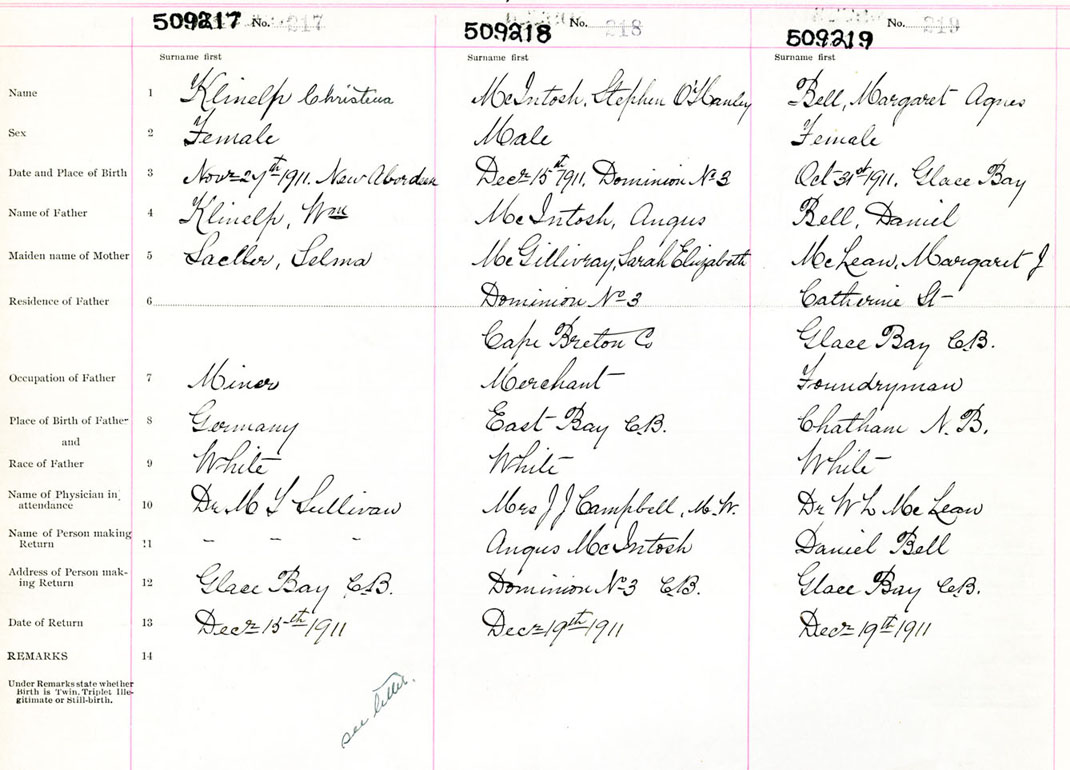 509217 No. 217
509218 No. 218
509219 No. 219
Surname first Surname first Surname first
Name 1 Klinelp Christena McIntosh, Stephen O'Hanley Bell, Margaret Agnes
Sex 2 Female Male Female
Date and Place of Birth 3 Novr 27th 1911. New Aberdeen Decr 15th 1911, Dominion No 3 Oct 31st 1911. Glace Bay
Name of Father 4 Klinelp, Wm McIntosh, Angus Bell, Daniel
Maiden name of Mother 5 Selma McGillivray, Sarah Elizabeth McLean, Margaret J
Residence of Father 6 Dominion No 3 Catherine St
Cape Breton Co Glace Bay C.B.
Occupation of Father 7 Miner Merchant Foundryman
Place of Birth of Father 8 Germany East Bay C.B. Chatham N.B.
and
Race of Father 9 White White White
Name of Physician in
attendance 10 Dr M T Sullivan Mrs J J Campbell, M.W. Dr W L McLean
Name of Person making
Return 11 - - - Angus McIntosh Daniel Bell
Address of Person mak-
ing Return 12 Glace Bay C.B. Dominion No 3 C.B. Glace Bay C.B.
Date of Return 13 Decr 15th 1911 Decr 19th 1911 Decr 19th 1911
REMARKS 14
Under Remarks state whether
Birth is Twin, Triplet Ille-
gitimate or Still-birth.
see letter.